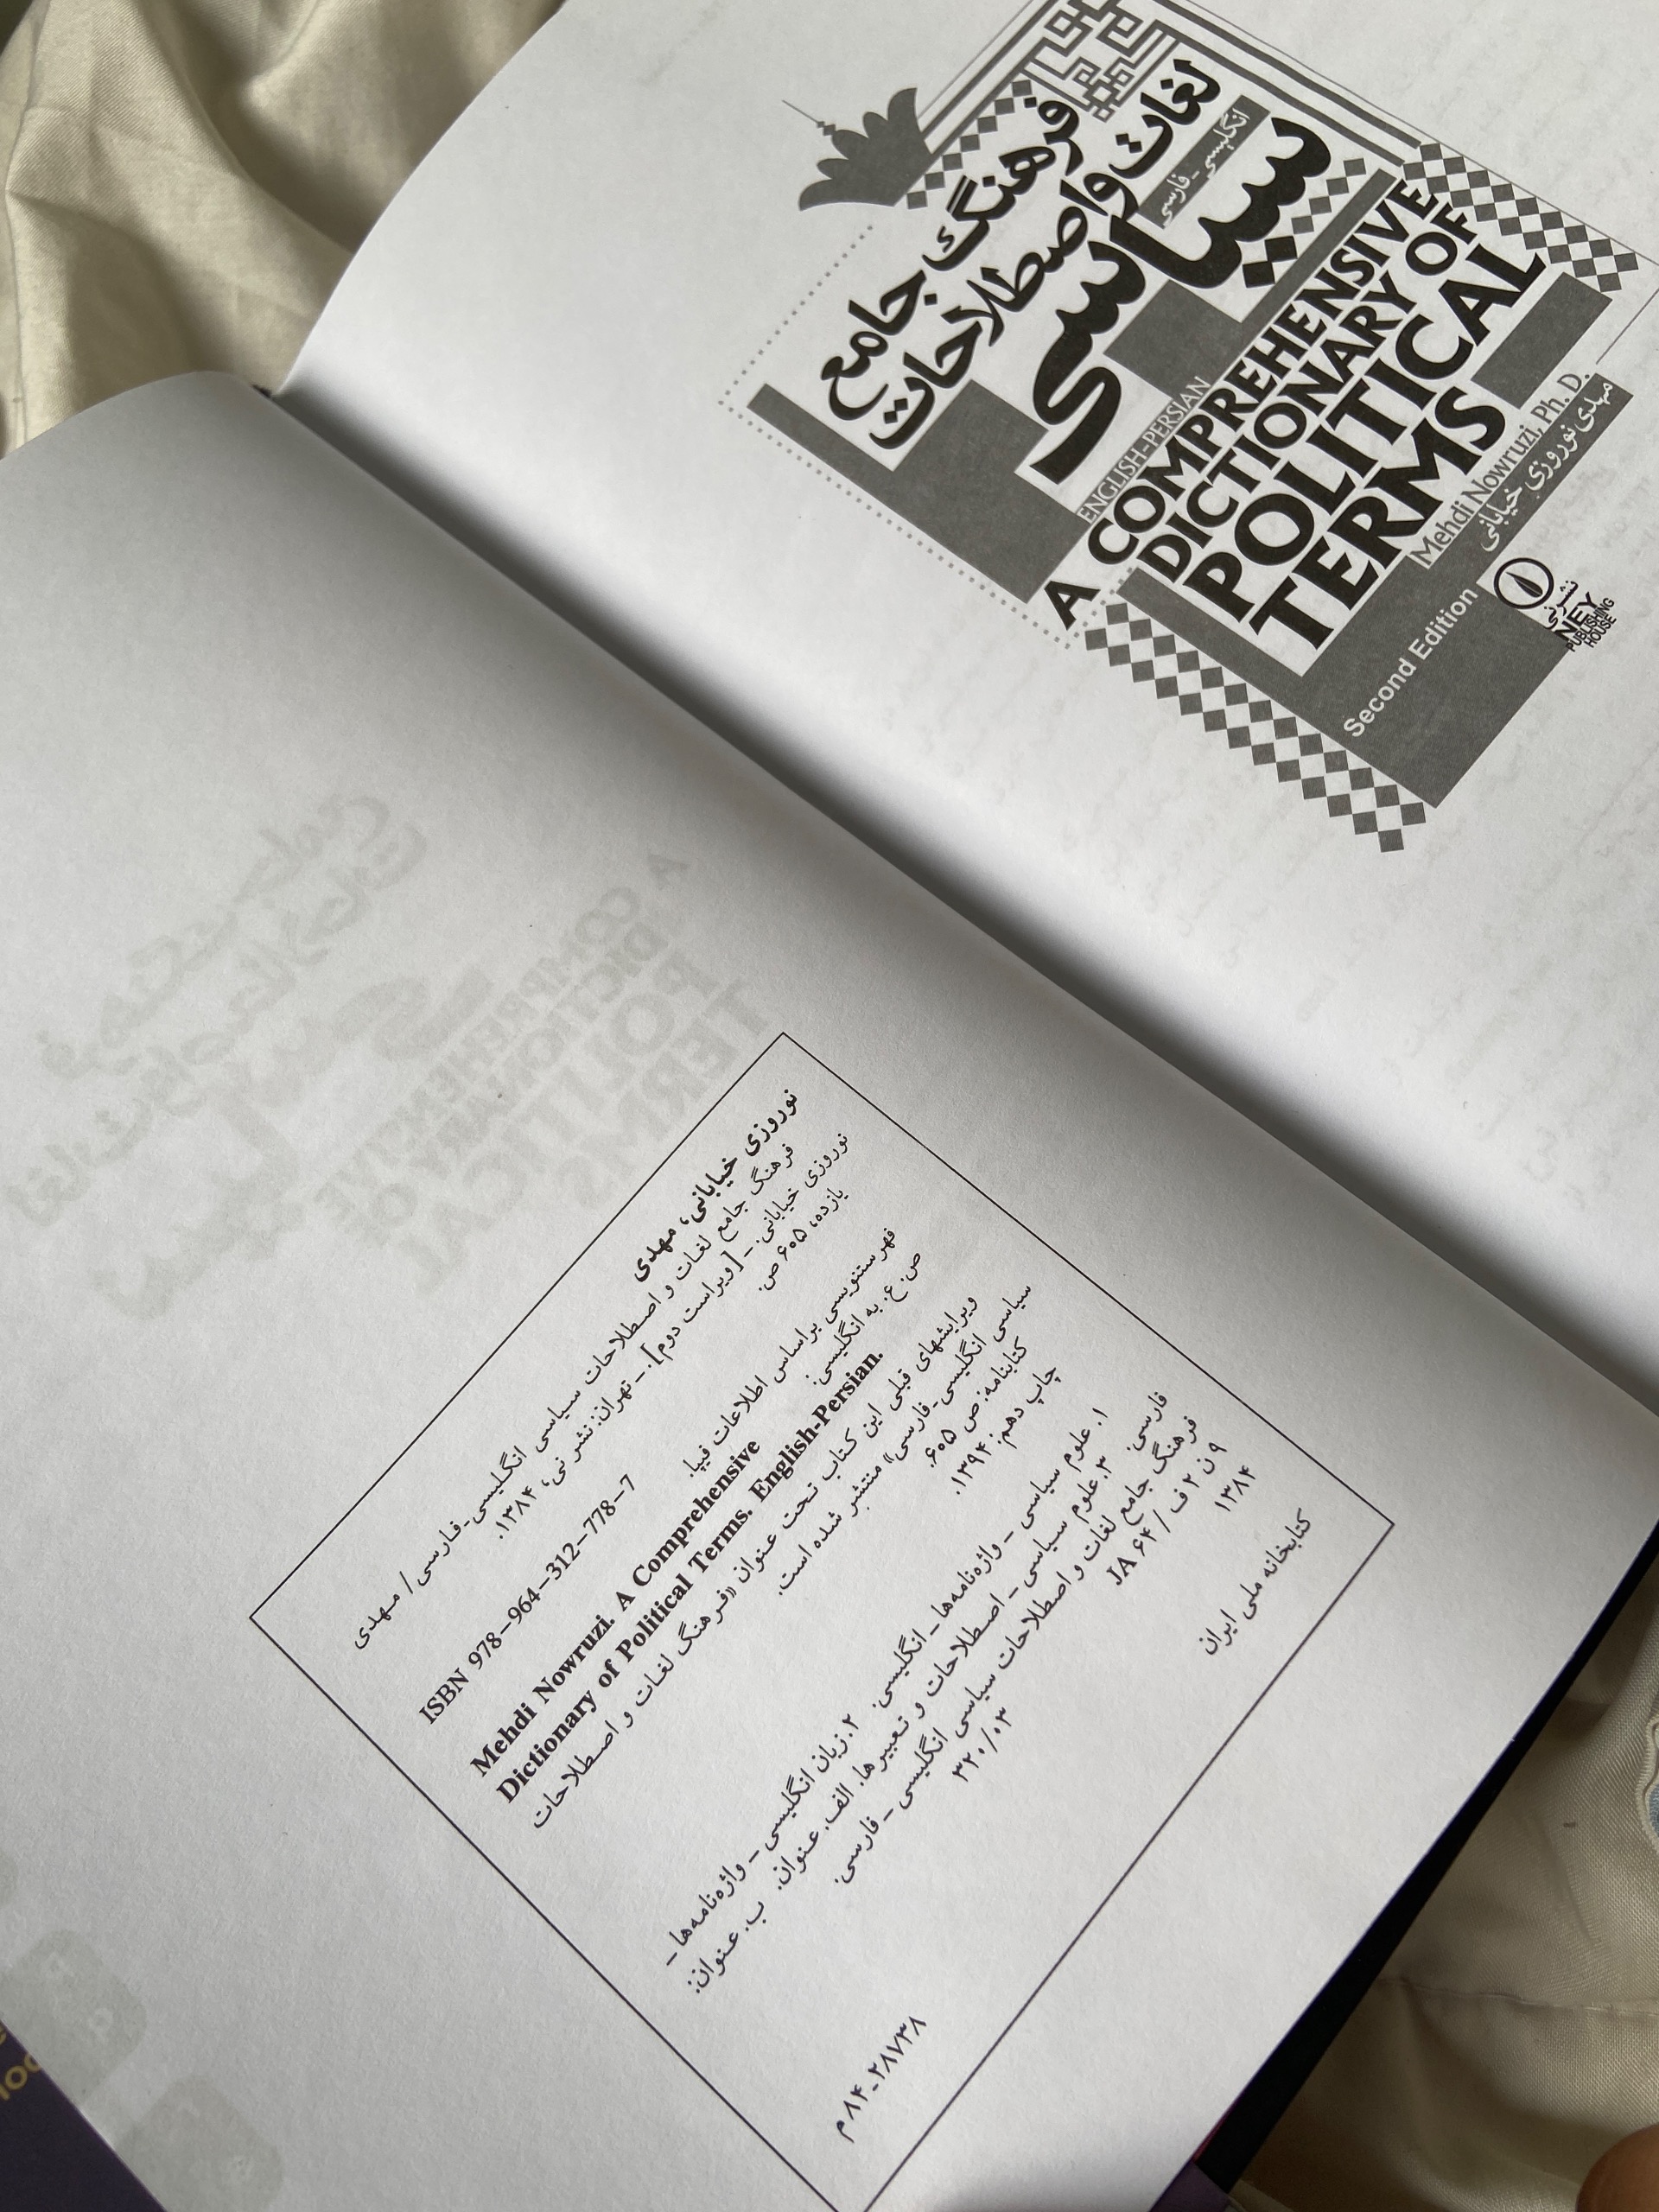 فرهنگ جامع
لغات و اصطلاحات
سیاسی
انگلیسی-فارسی
ENGLISH-PERSIAN
A COMPREHENSIVE
DICTIONARY OF
POLITICAL
TERMS
Mehdi Nowruzi, Ph. D.
مهدی نوروزی خیابانی
Second Edition
نشر نی
NEY
PUBLISHING
HOUSE
نوروزی خیابانی، مهدی
فرهنگ جامع لغات و اصطلاحات سیاسی انگلیسی-فارسی / مهدی
نوروزی خیابانی. ــ [ویراست دوم]. ــ تهران: نشر نی، ۱۳۸۴.
یازده، ۶۰۵ ص.
ISBN 978-964-312-778-7
فهرستنویسی براساس اطلاعات فیپا.
ص. ع. به انگلیسی:
Mehdi Nowruzi. A Comprehensive
Dictionary of Political Terms. English-Persian.
ویرایشهای قبلی این کتاب تحت عنوان «فرهنگ لغات و اصطلاحات
سیاسی انگلیسی-فارسی» منتشر شده است.
کتابنامه: ص ۶۰۵.
چاپ دهم: ۱۳۹۴.
۱. علوم سیاسی ــ واژه‌نامه‌ها ــ انگلیسی. ۲. زبان انگلیسی ــ واژه‌نامه‌ها ــ
فارسی. ۳. علوم سیاسی ــ اصطلاحات و تعبیرها. الف. عنوان. ب. عنوان:
فرهنگ جامع لغات و اصطلاحات سیاسی انگلیسی ــ فارسی.
۹ ن ۲ ف / JA ۶۴ ۳۲۰/۰۳
۱۳۸۴
کتابخانه ملی ایران ۸۴-۲۸۷۳۸ م